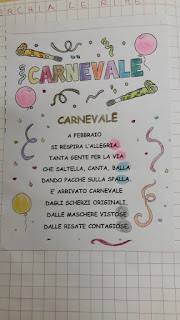 CERCHIA LE RIME
CARNEVALE
CARNEVALE
A FEBBRAIO
SI RESPIRA L'ALLEGRIA,
TANTA GENTE PER LA VIA
CHE SALTELLA, CANTA, BALLA
DANDO PACCHE SULLA SPALLA.
E ARRIVATO CARNEVALE
DAGLI SCHERZI ORIGINALI
DALLE MASCHERE VISTOSE
DALLE RISATE CONTAGIOSE.